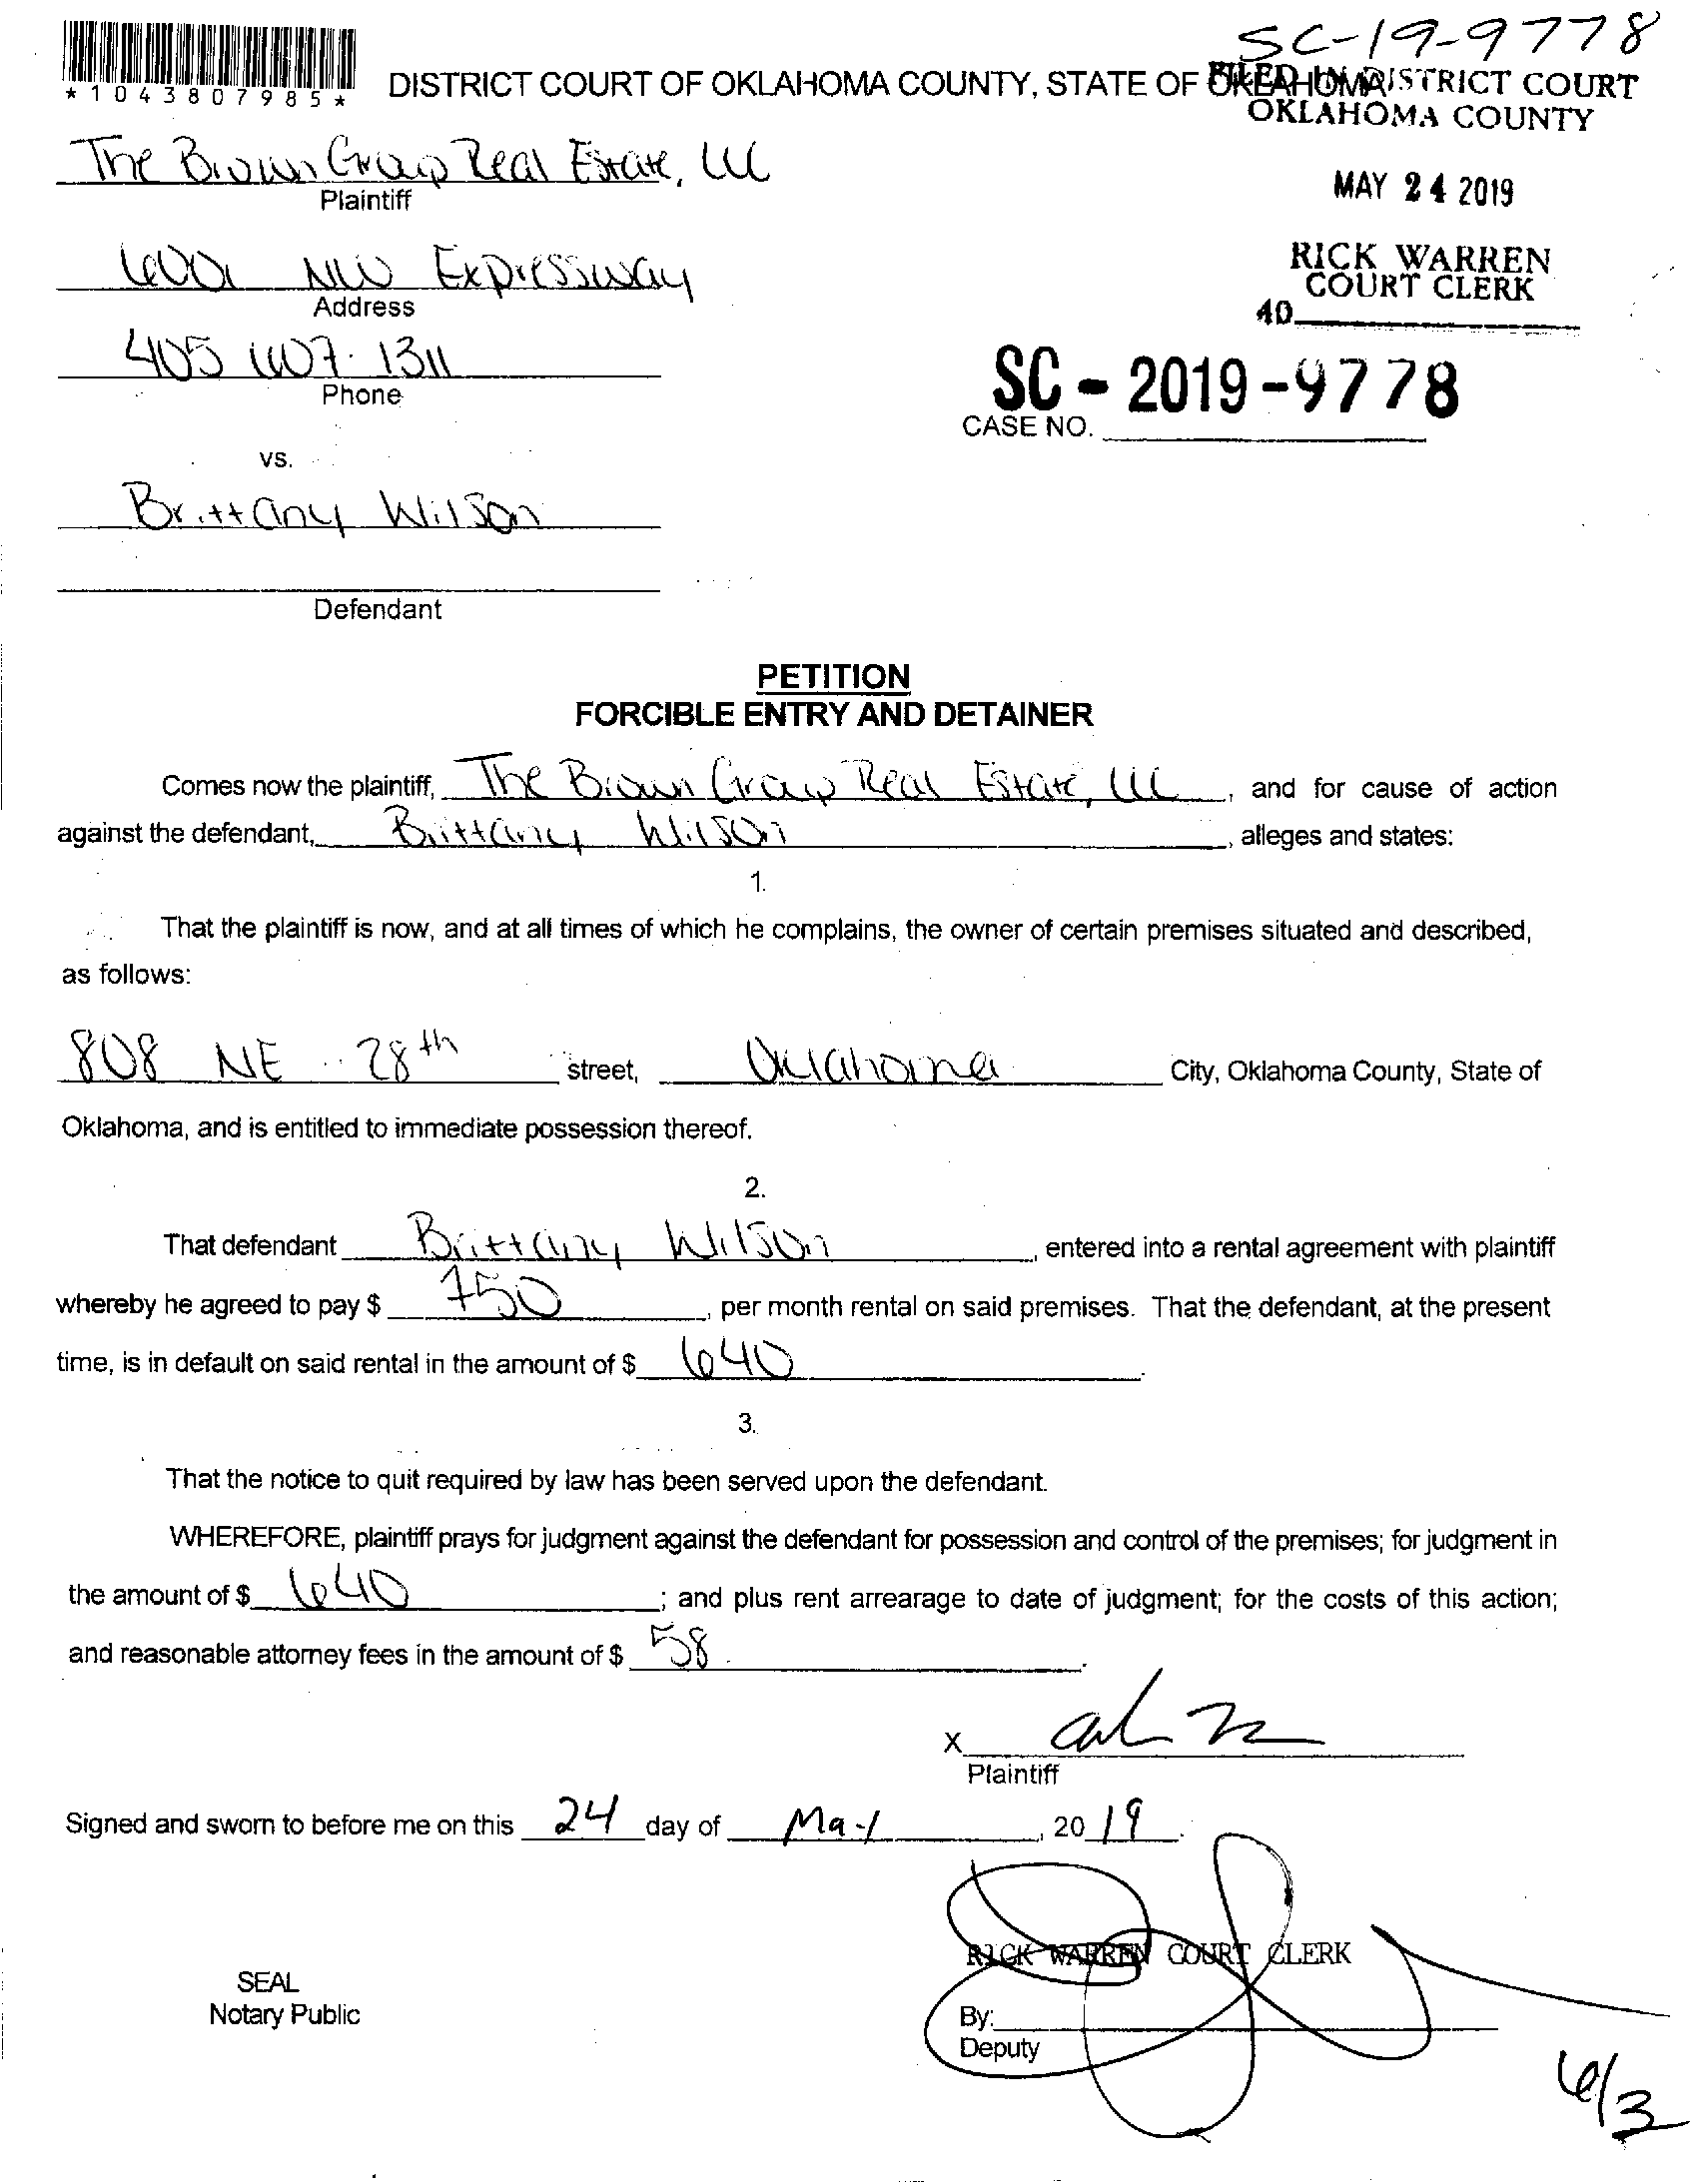 SC-19-9778
*1043807985*
DISTRICT COURT OF OKLAHOMA COUNTY, STATE OF OKLAHOMA
FILED IN DISTRICT COURT
OKLAHOMA COUNTY
The Brown Group Real Estate, LLC
Plaintiff
MAY 24 2019
6001 NW Expressway
Address
RICK WARREN
COURT CLERK
40
405 607. 1311
Phone
SC - 2019 - 9778
CASE NO.
vs.
Brittany Wilson
Defendant
PETITION
FORCIBLE ENTRY AND DETAINER
Comes now the plaintiff, The Brown Group Real Estate, LLC, and for cause of action
against the defendant, Brittany Wilson, alleges and states:
1.
That the plaintiff is now, and at all times of which he complains, the owner of certain premises situated and described,
as follows:
808 NE 28th street, Oklahoma City, Oklahoma County, State of
Oklahoma, and is entitled to immediate possession thereof.
2.
That defendant Brittany Wilson, entered into a rental agreement with plaintiff
whereby he agreed to pay $ 750, per month rental on said premises. That the defendant, at the present
time, is in default on said rental in the amount of $ 640.
3.
That the notice to quit required by law has been served upon the defendant.
WHEREFORE, plaintiff prays for judgment against the defendant for possession and control of the premises; for judgment in
the amount of $ 640; and plus rent arrearage to date of judgment; for the costs of this action;
and reasonable attorney fees in the amount of $ 58.
X
Plaintiff
Signed and sworn to before me on this 24 day of May, 2019.
RICK WARREN COURT CLERK
SEAL
Notary Public
By:
Deputy
6/3